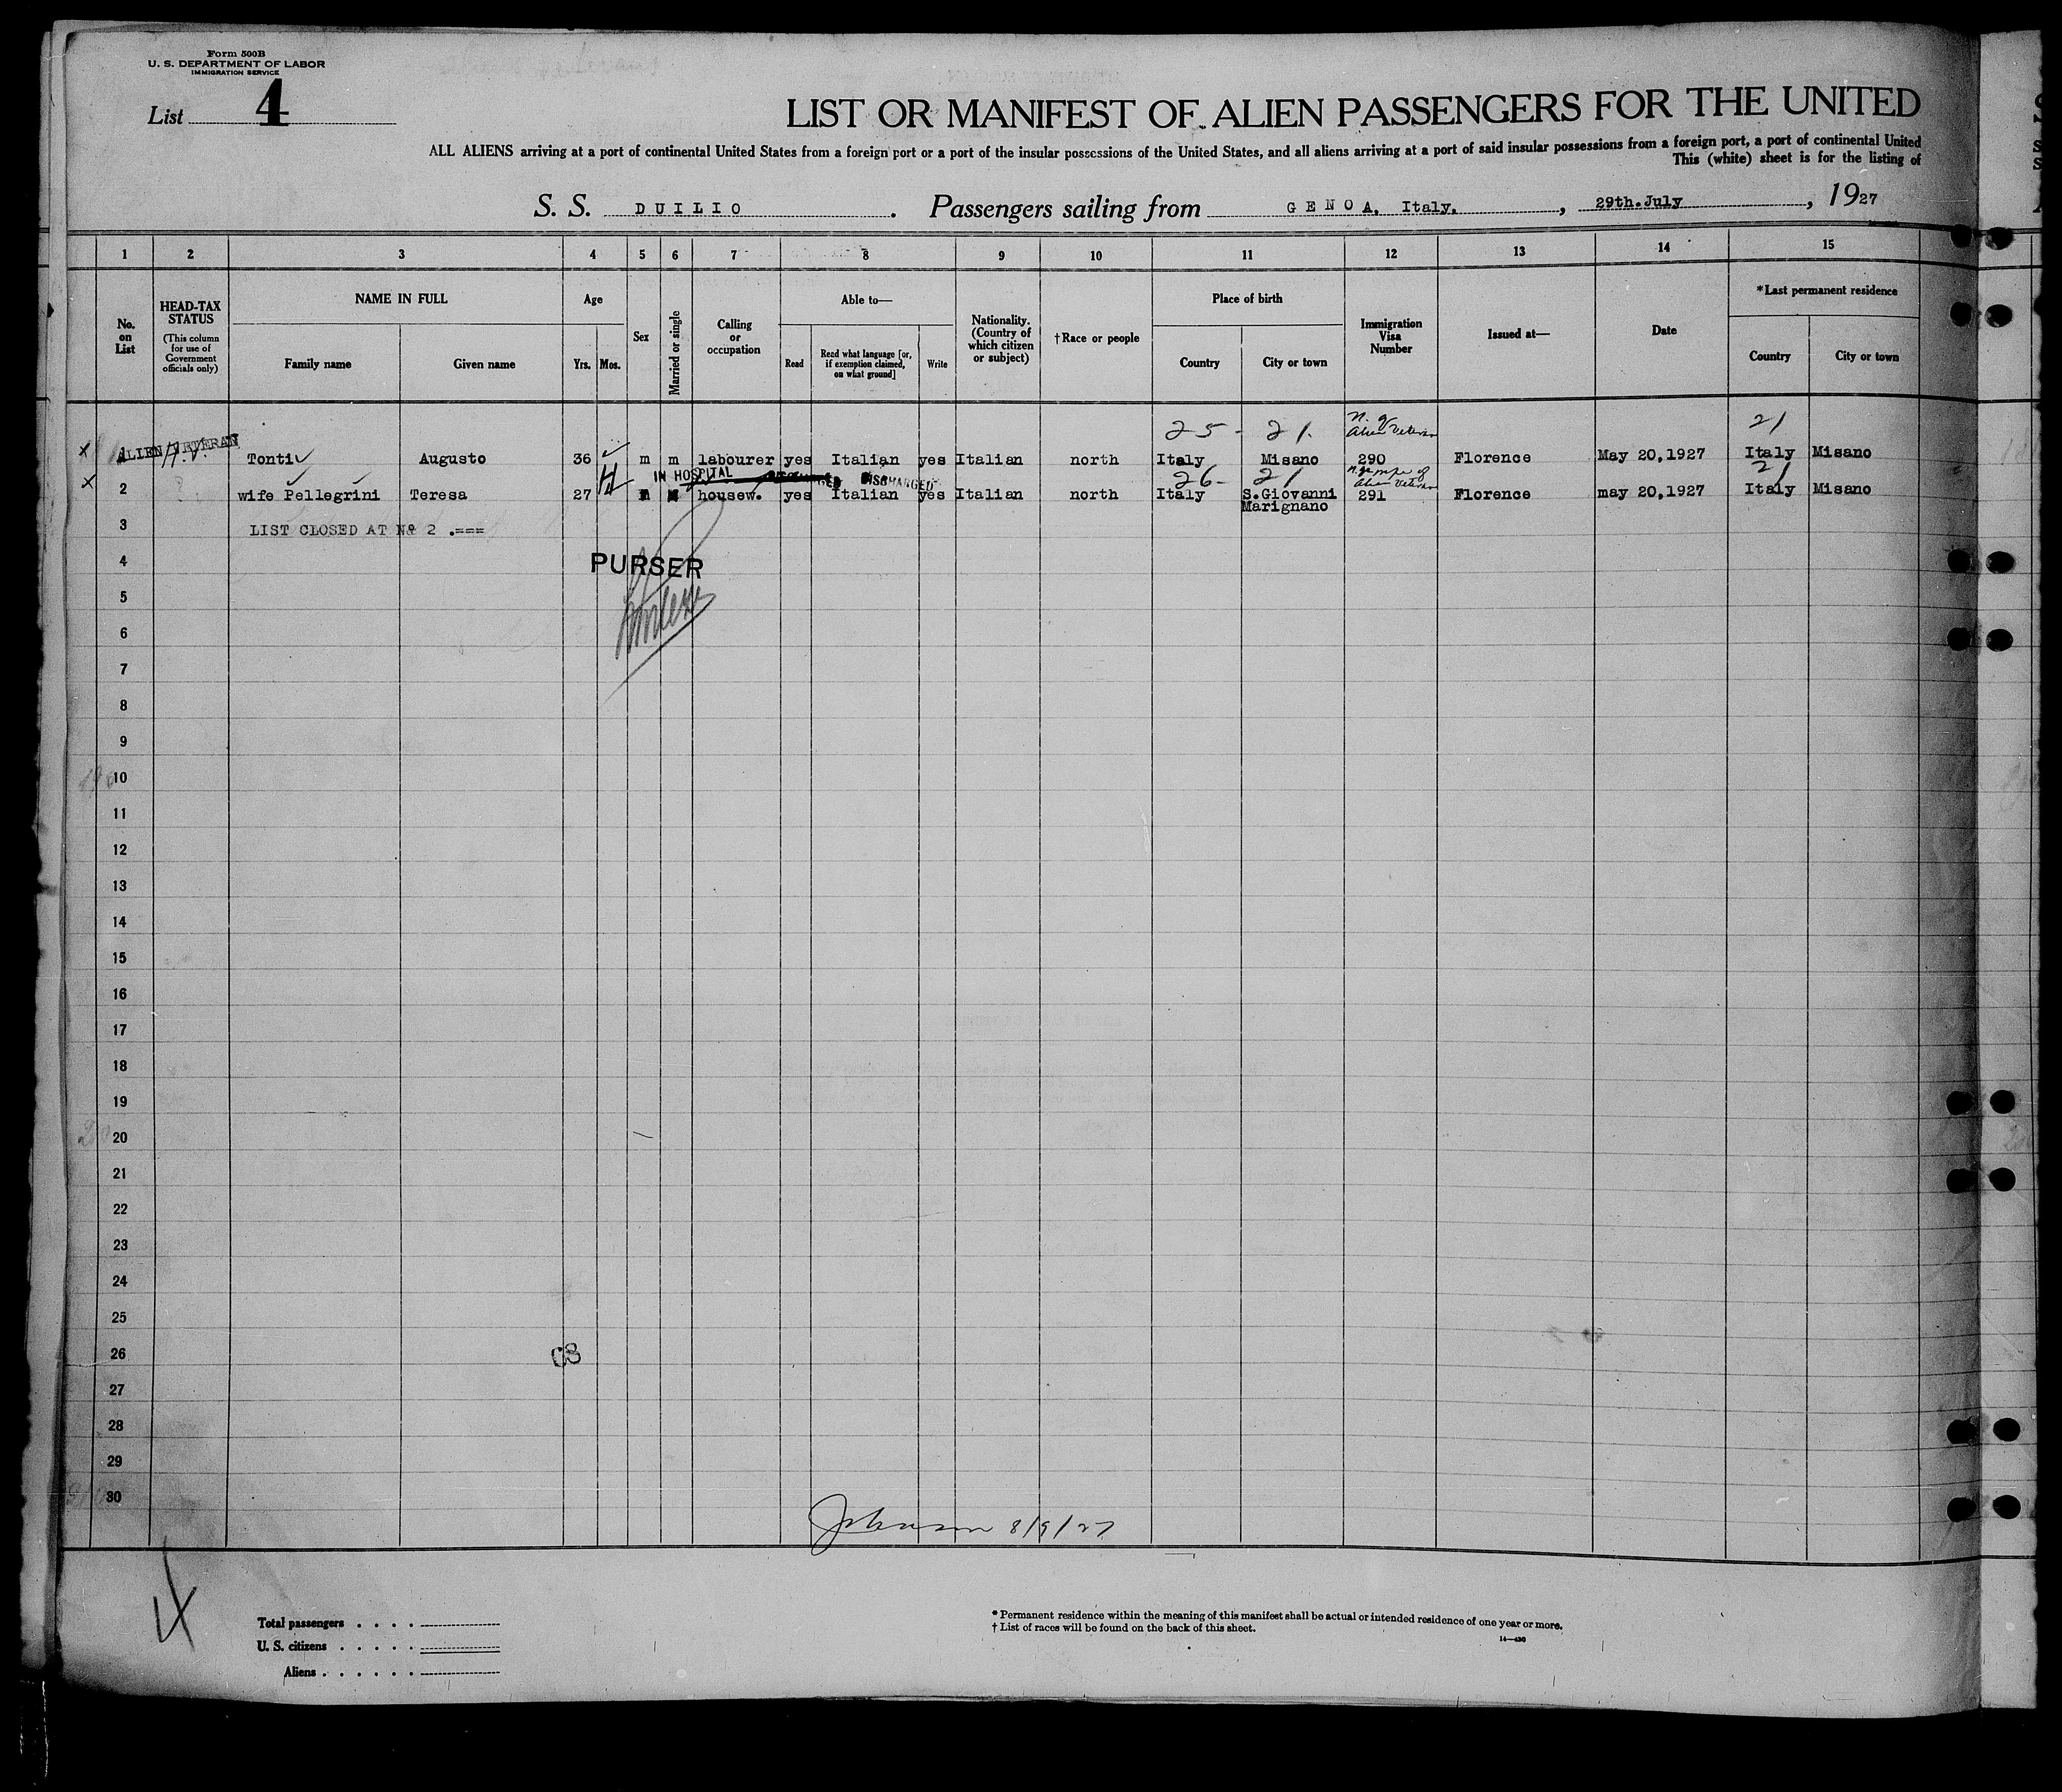 Form 500B
U. S. DEPARTMENT OF LABOR
IMMIGRATION SERVICE
List 4
LIST OR MANIFEST OF ALIEN PASSENGERS FOR THE UNITED
ALL ALIENS arriving at a port of continental United States from a foreign port or a port of the insular possessions of the United States, and all aliens arriving at a port of said insular possessions from a foreign port, a port of continental United
This (white) sheet is for the listing of
S. S. DUILIO. Passengers sailing from GENOA, Italy., 29th.July, 1927
1 2 3 4 5 6 7 8 9 10 11 12 13 14 15
No. on List
HEAD-TAX STATUS
(This column for use of Government officials only)
NAME IN FULL
Family name
Given name
Age
Yrs. Mos.
Sex
Married or single
Calling or occupation
Able to—
Read
Read what language [or, if exemption claimed, on what ground]
Write
Nationality. (Country of which citizen or subject)
†Race or people
Place of birth
Country
City or town
Immigration Visa Number
Issued at—
Date
*Last permanent residence
Country
City or town
25 - 21. n. q Alien Veteran 21
x 1 ALIEN VETERAN H.V. Tonti Augusto 36 m m labourer yes Italian yes Italian north Italy Misano 290 Florence May 20,1927 Italy Misano
IN HOSPITAL DISCHARGED 26- 21 n.q. wife of Alien Veteran 21
x 2 wife Pellegrini Teresa 27 housew. yes Italian yes Italian north Italy S.Giovanni Marignano 291 Florence may 20,1927 Italy Misano
3 LIST CLOSED AT Nº 2 .===
4 PURSER
5
6
7
8
9
10
11
12
13
14
15
16
17
18
19
20
21
22
23
24
25
26
27
28
29
30
Johnson 8/9/27
Total passengers . . . .
U. S. citizens . . . . .
Aliens . . . . . .
* Permanent residence within the meaning of this manifest shall be actual or intended residence of one year or more.
† List of races will be found on the back of this sheet.
14—430